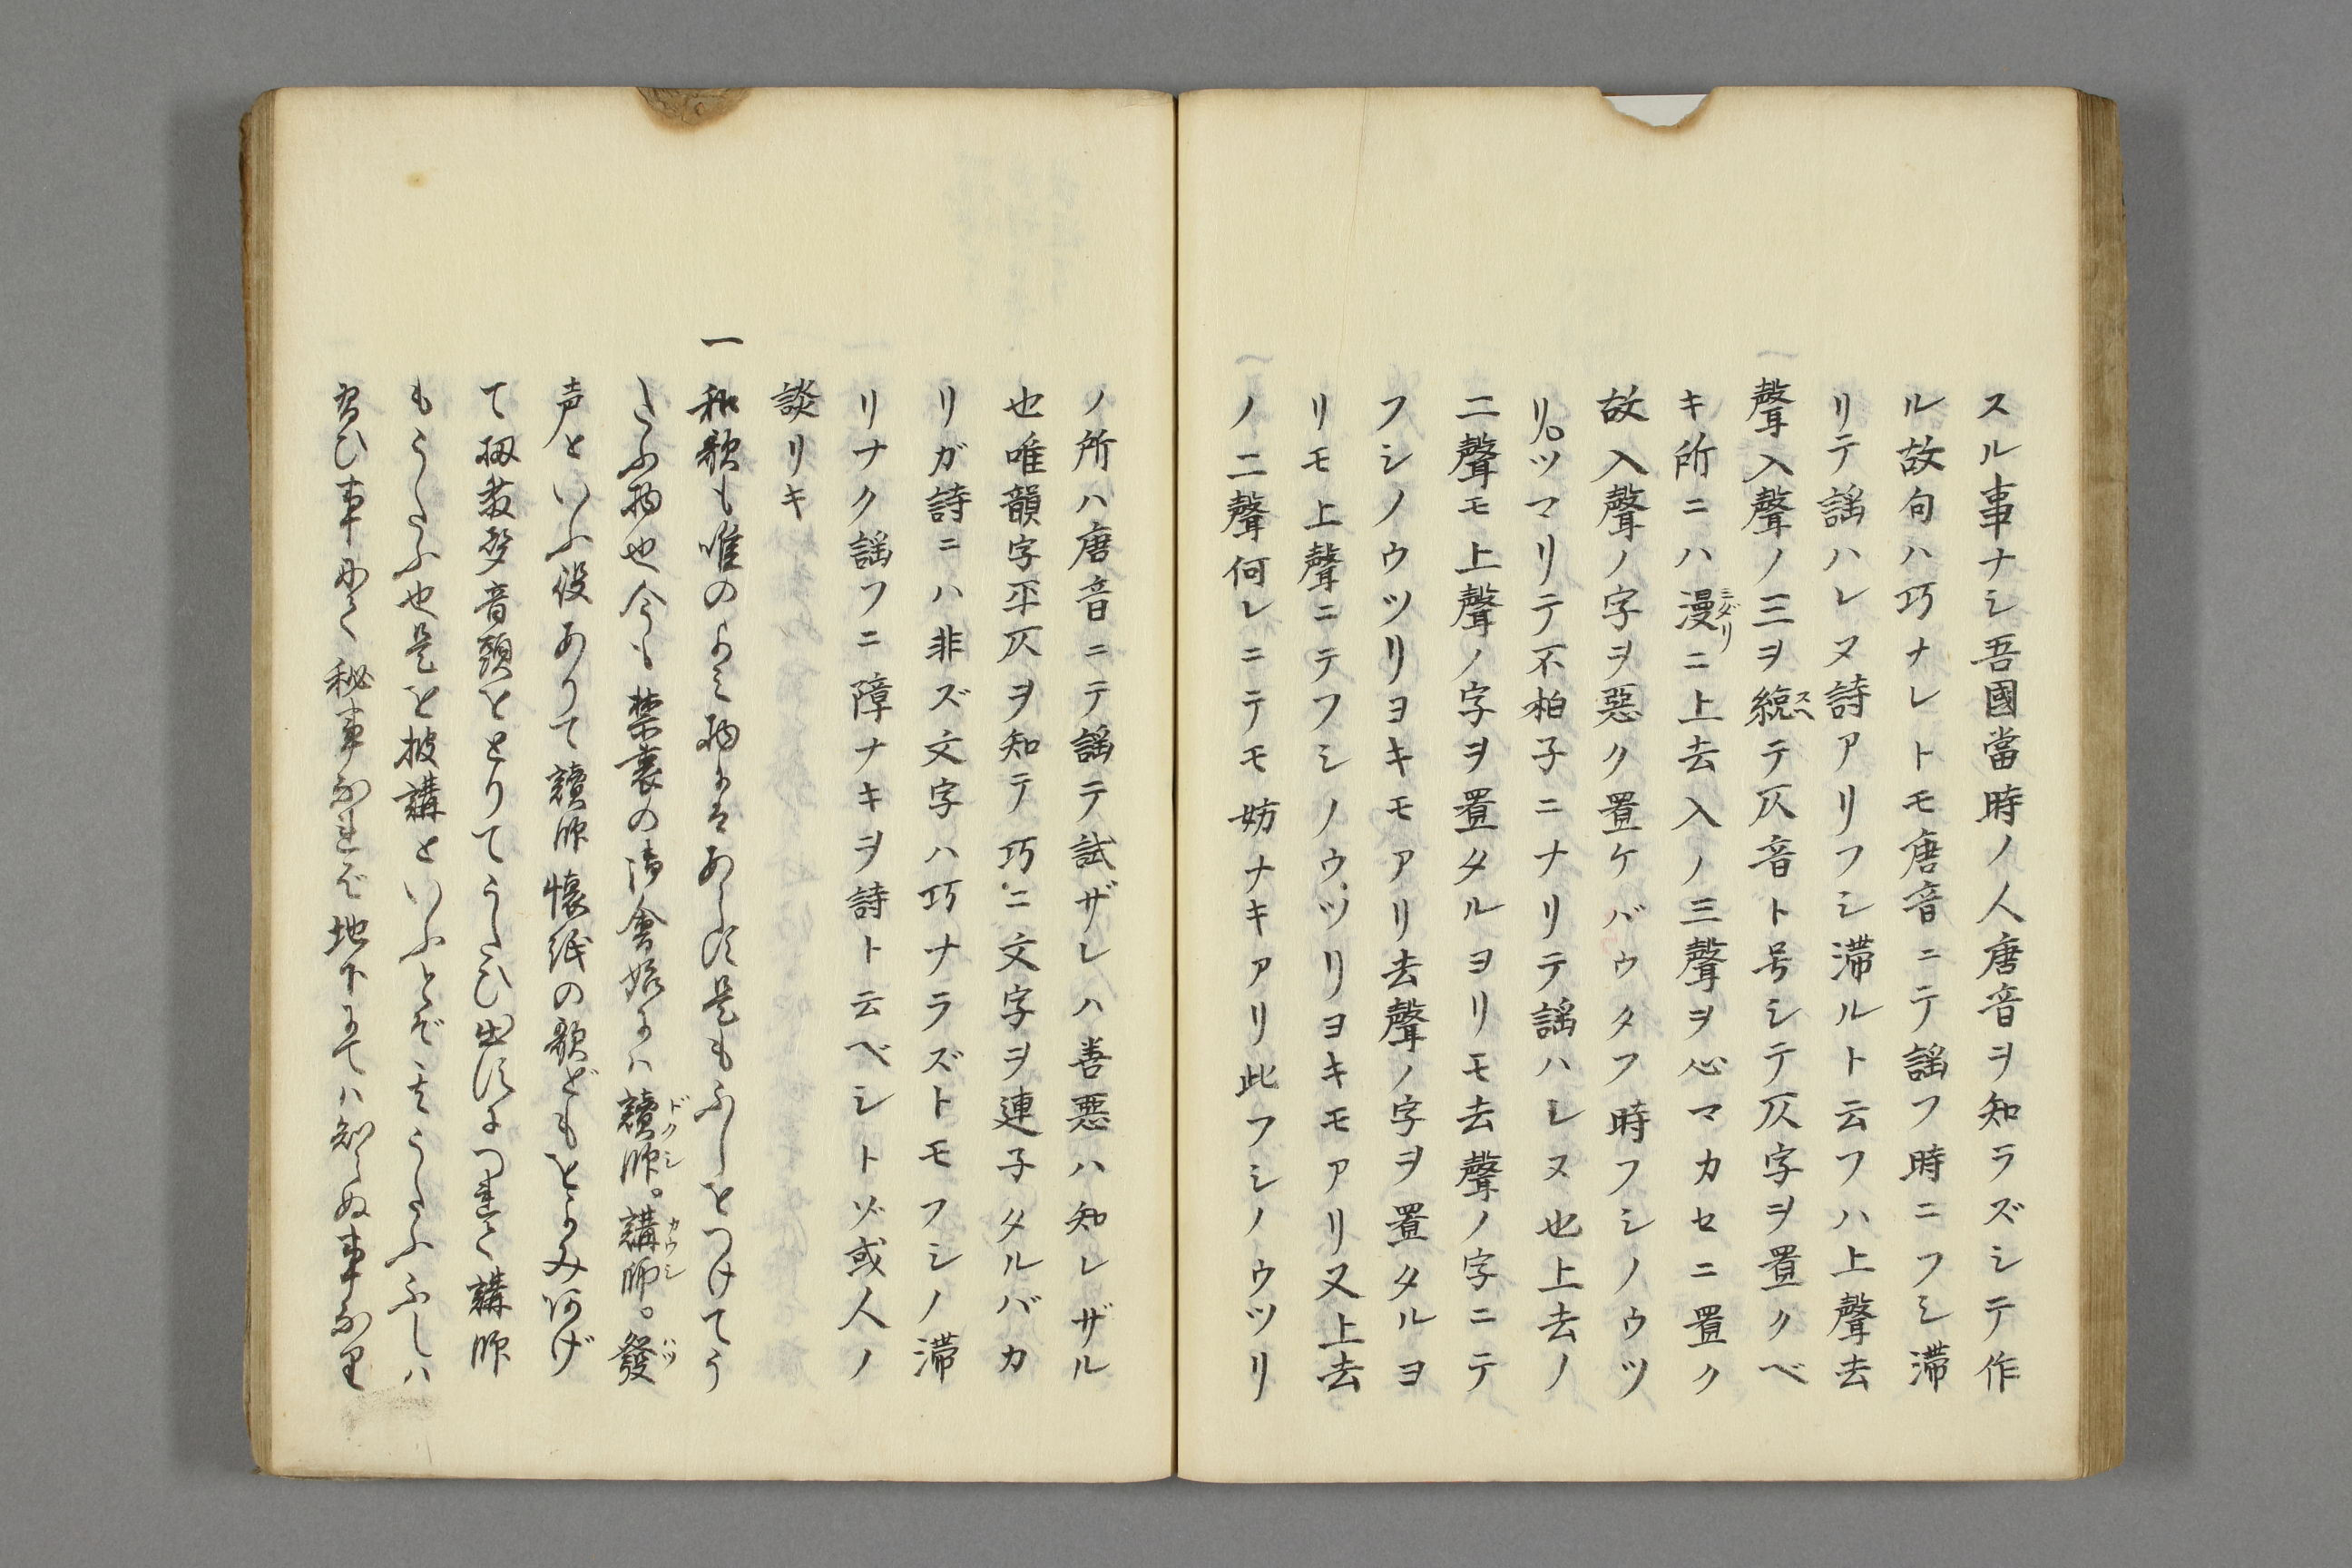 スル事ナシ吾國當時ノ人唐音ヲ知ラズシテ作
ル故句ハ巧ナレトモ唐音ニテ謡フ時ニフシ滞
リテ謡ハレヌ詩アリフシ滞ルト云フハ上聲去
聲入聲ノ三ヲ綂スヘテ仄音ト号シテ仄字ヲ置クベ
キ所ニハ漫ミダリニ上去入ノ三聲ヲ心マカセニ置ク
故入聲ノ字ヲ惡ク置ケバウタフ時フシノウツ
リ。ツマリテ不柏子ニナリテ謡ハレヌ也上去ノ
二聲モ上聲ノ字ヲ置タルヨリモ去聲ノ字ニテ
フシノウツリヨキモアリ去聲ノ字ヲ置タルヨ
リモ上聲ニテフシノウツリヨキモアリ又上去
ノ二聲何レニテモ妨ナキアリ此フシノウツリ
ノ所ハ唐音ニテ謡テ試ザレハ善悪ハ知レザル
也唯韻字平仄ヲ知テ巧ニ文字ヲ連子タルバカ
リガ詩ニハ非ズ文字ハ巧ナラズトモフシノ滞
リナク謡フニ障ナキヲ詩ト云ベシトゾ或人ノ
談リキ
一和歌も唯のよみ物にはあらず是もふしをつけてう
たふ物也今も禁裏の御會始には讀師ドクシ。講師カウシ。發ハツ
声といふ役ありて讀師懐紙の歌どもをよみあげ
て扨發声音頭をとりてうたひ出すにつれて講師
もうたふ也是を披講といふとぞ其うたふふしハ
習ひ事にて秘事なれば地下にてハ知らぬ事なり